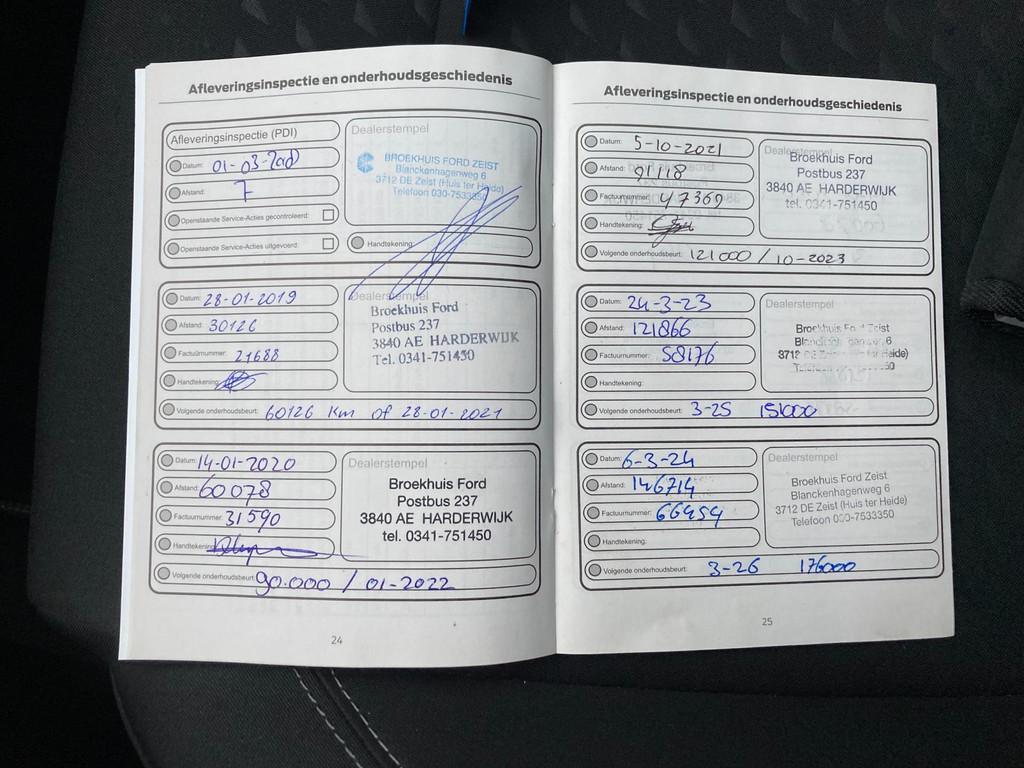 Afleveringsinspectie en onderhoudsgeschiedenis
Afleveringsinspectie (PDI)
Datum: 01-03-
Afstand: 7
Openstaande Service-Acties gecontroleerd:
Openstaande Service-Acties uitgevoerd:
Dealerstempel
BROEKHUIS FORD ZEIST
Blanckenhagenweg 6
3712 DE Zeist (Huis ter Heide)
Telefoon 030-7533350
Handtekening:
Datum: 28-01-2019
Afstand: 30126
Factuurnummer: 21688
Handtekening:
Volgende onderhoudsbeurt: 60126 Km of 28-01-2021
Dealerstempel
Broekhuis Ford
Postbus 237
3840 AE HARDERWIJK
Tel. 0341-751450
Datum: 14-01-2020
Afstand: 60078
Factuurnummer: 31590
Handtekening:
Volgende onderhoudsbeurt: 90.000 / 01-2022
Dealerstempel
Broekhuis Ford
Postbus 237
3840 AE HARDERWIJK
tel. 0341-751450
24
Afleveringsinspectie en onderhoudsgeschiedenis
Datum: 5-10-2021
Afstand: 91118
Factuurnummer: 47369
Handtekening:
Volgende onderhoudsbeurt: 121000 / 10-2023
Dealerstempel
Broekhuis Ford
Postbus 237
3840 AE HARDERWIJK
tel. 0341-751450
Datum: 24-3-23
Afstand: 121866
Factuurnummer: 58176
Handtekening:
Volgende onderhoudsbeurt: 3-25 151000
Dealerstempel
Broekhuis Ford Zeist
6
3712 DE Zeist (Huis ter Heide)
Datum: 6-3-24
Afstand: 146714
Factuurnummer: 66454
Handtekening:
Volgende onderhoudsbeurt: 3-26 176000
Dealerstempel
Broekhuis Ford Zeist
Blanckenhagenweg 6
3712 DE Zeist (Huis ter Heide)
Telefoon 030-7533350
25